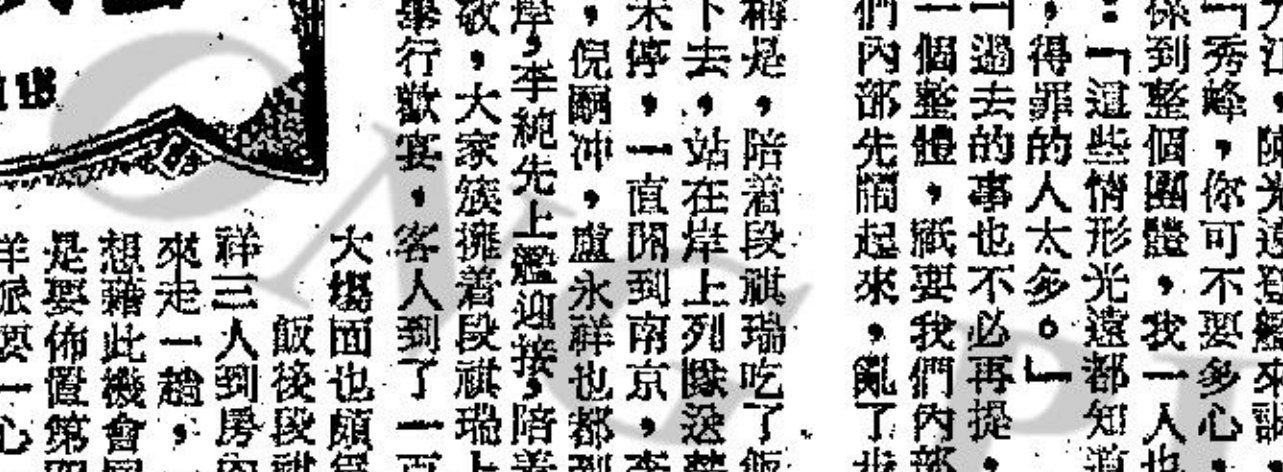 九江，陳光遠登艦來謁
「秀峰，你可不要多心，
係到整個團體，我一人也
：「這些情形光遠都知道
，得罪的人太多。」
「過去的事也不必再提，
一個整體，祇要我們內部
們內部先鬧起來，亂了步
稱是，陪着段祺瑞吃了飯
下去，站在岸上列隊送
未停，一直開到南京，李
，倪嗣冲，盧永祥也都到
岸，李純先上艦迎接，陪着
敬，大家簇擁着段祺瑞上
舉行歡宴，客人到了一百
大場面也頗
飯後段祺
祥三人到房內
來走一趟，
想藉此機會
是要佈置第四
派要一心